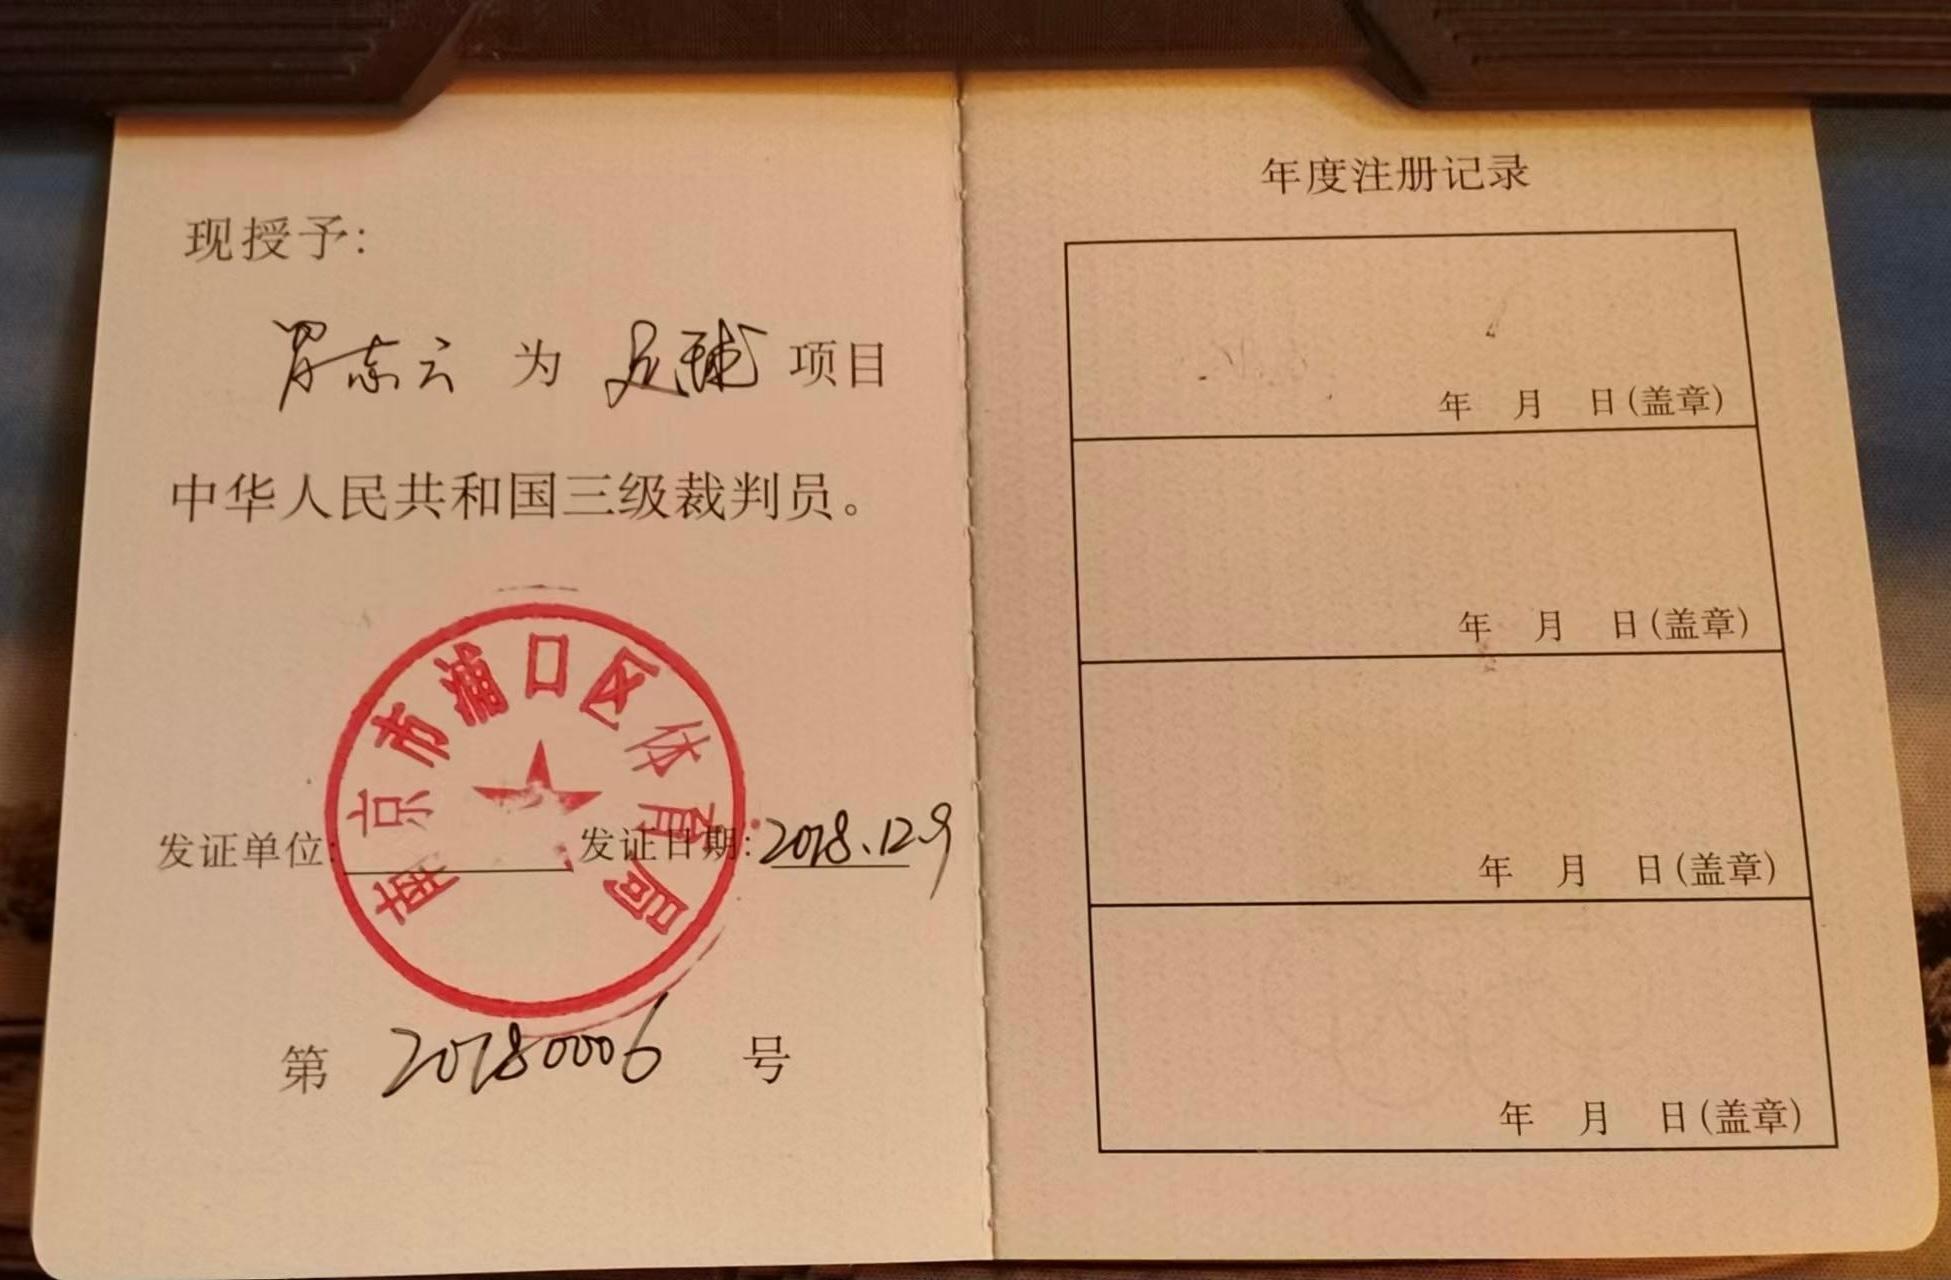 现授予:
罗志云 为 足球 项目
中华人民共和国三级裁判员。
南京市浦口区体育局
发证单位: 发证日期: 2018.12.9
第 20180006 号
年度注册记录
年 月 日(盖章)
年 月 日(盖章)
年 月 日(盖章)
年 月 日(盖章)